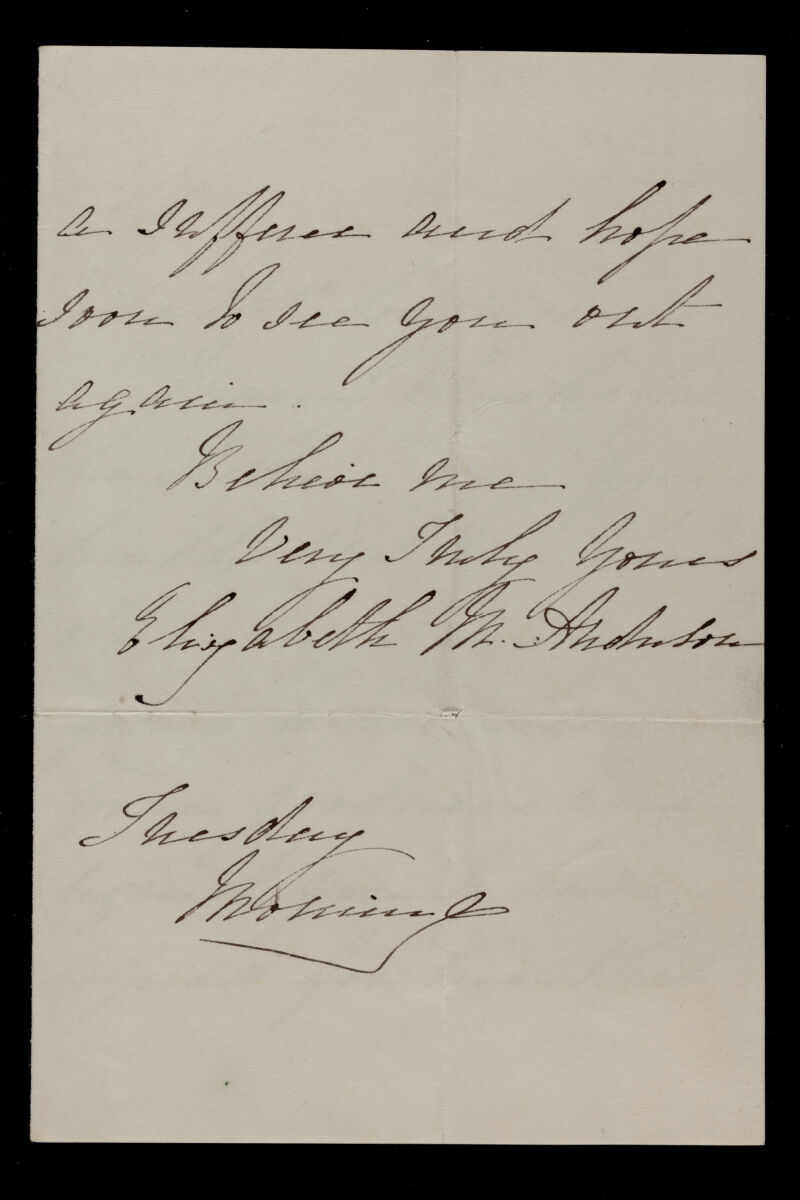 a sufferer and hope
soon to see you out
again.
Believe me
Very Truly Yours
Elizabeth M. Anderson
Tuesday
Morning